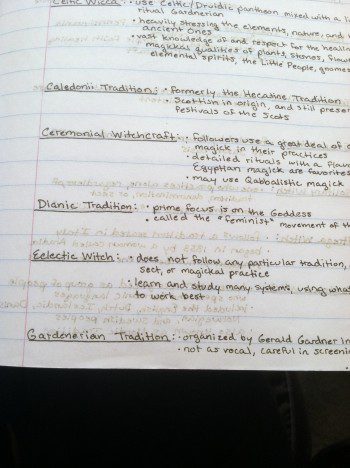 Celtic Wicca: • use Celtic/Druidic pantheon mixed with a li
ritual Gardnerian
• heavily stressing the elements, nature, and
ancient Ones
• vast knowledge of and respect for the healin
magickal qualities of plants, stones, flow
elemental spirits, the Little People, gnomes
Caledonii Tradition: • formerly the Hecatine Tradition
• Scottish in origin, and still preser
festivals of the Scots
Ceremonial Witchcraft: • followers use a great deal of c
magick in their practices
• detailed rituals with a flavo
Egyptian magick are favorites
• may use Qabbalistic magick
Dianic Tradition: • prime focus is on the Goddess
• called the "feminist" movement of th
Eclectic Witch: • does not follow any particular tradition,
sect, or magickal practice
• learn and study many systems, using what
to work best
Gardenerian Tradition: • organized by Gerald Gardner in
• not as vocal, careful in screenin